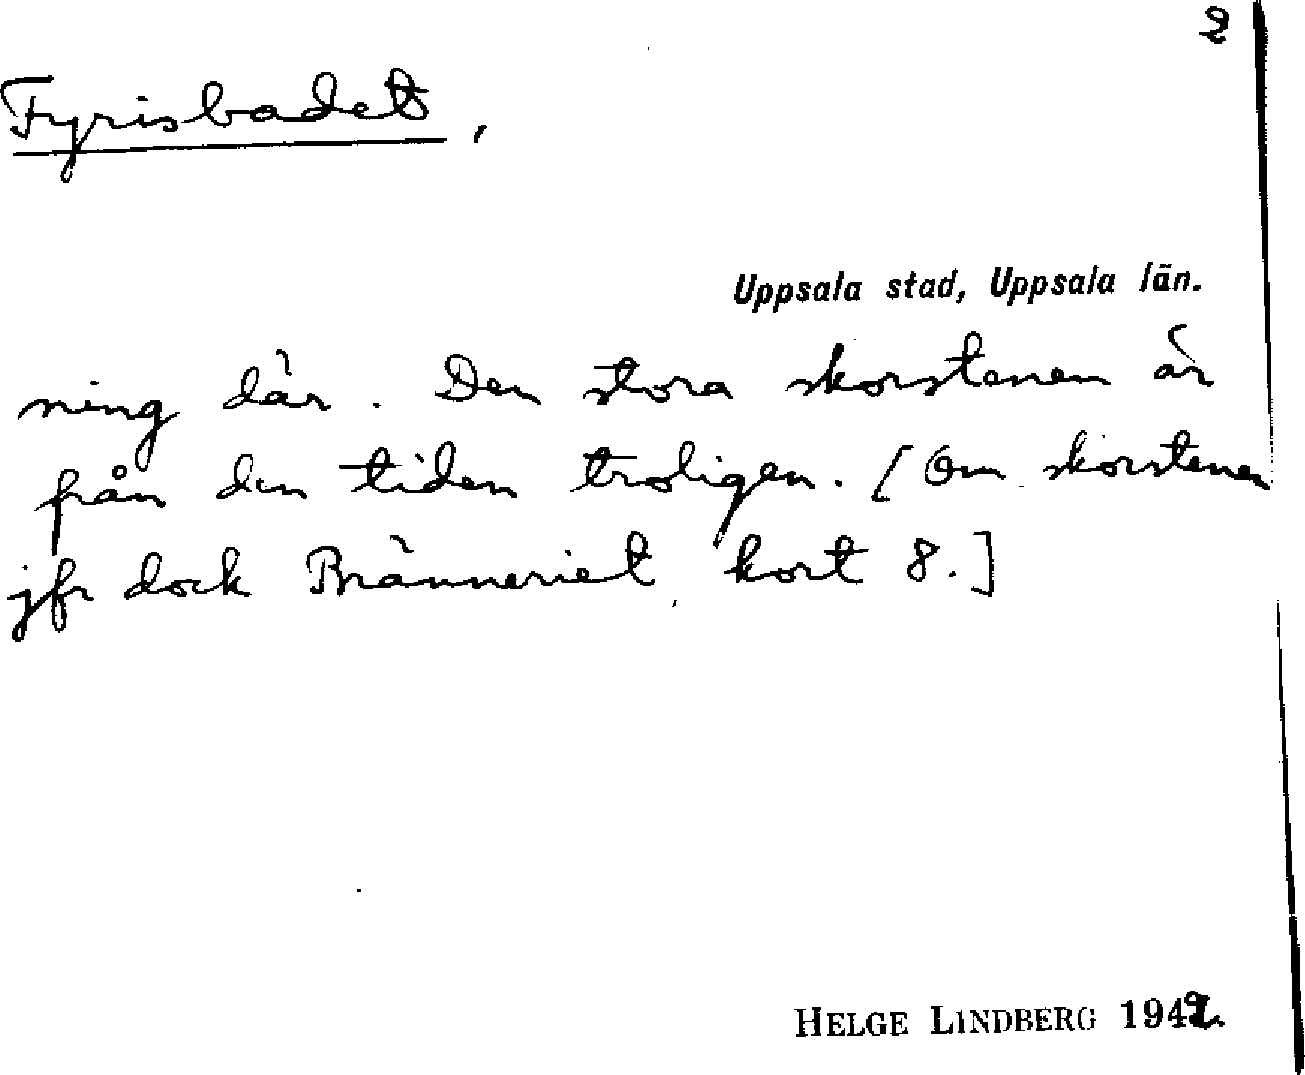 2
Fyrisbadet,
Uppsala stad, Uppsala län.
ning där. Den stora skorstenen är
från den tiden troligen. [Om skorstenen
jfr dock Bränneriet, kort 8.]
HELGE LINDBERG 1942